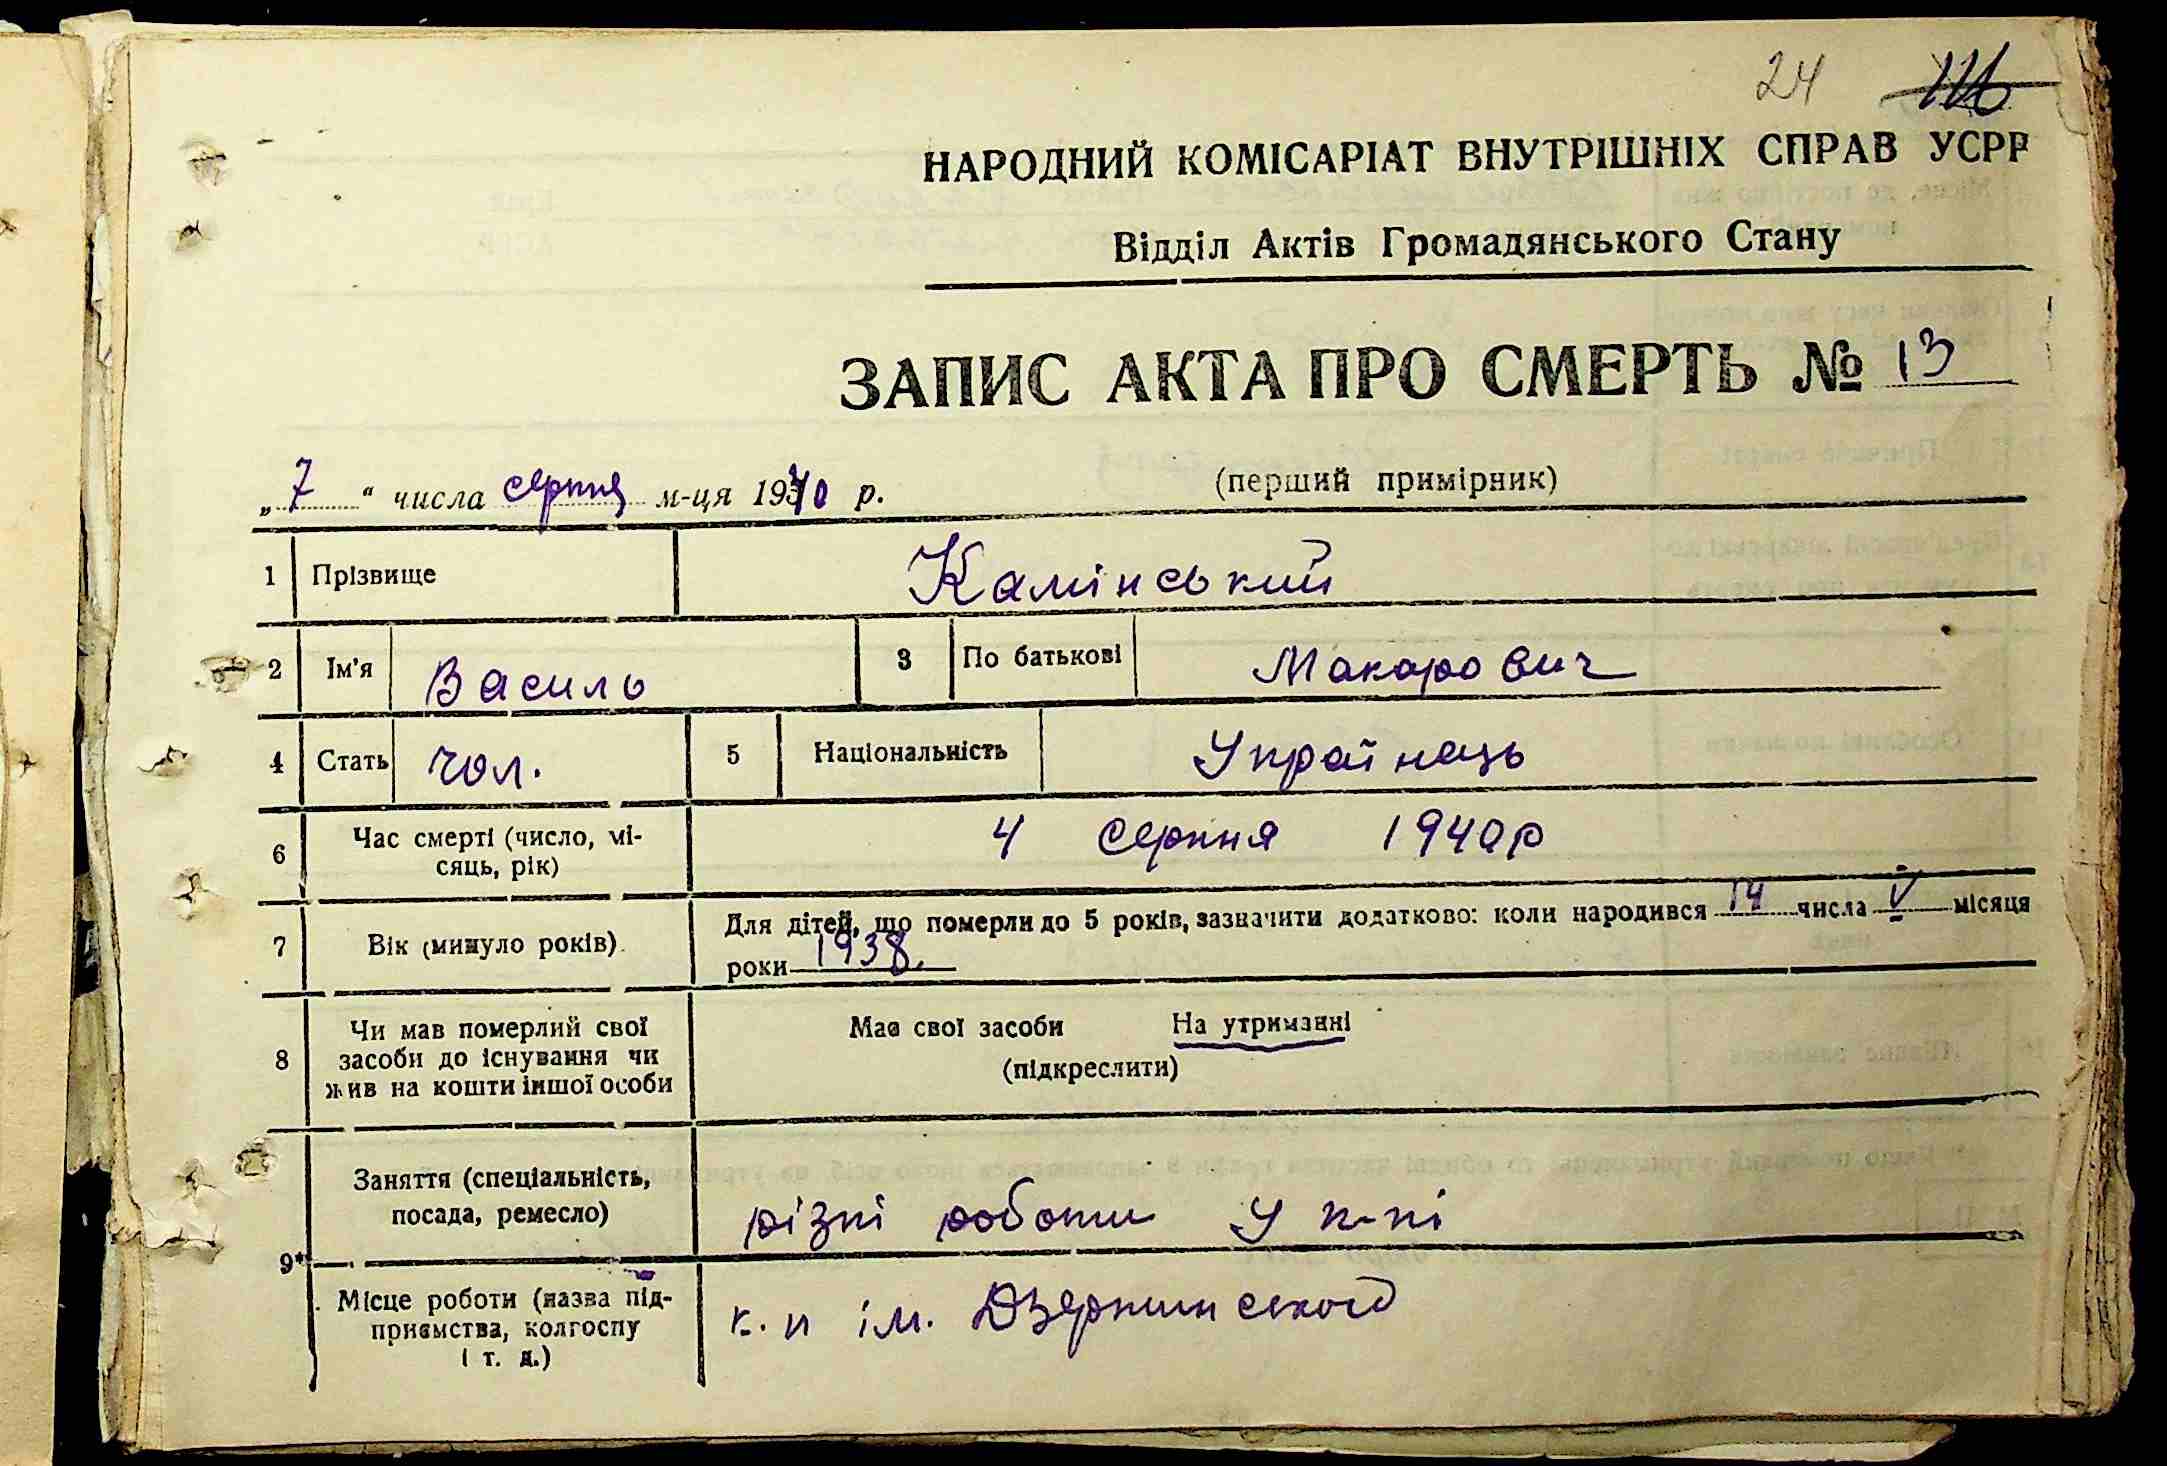 24 116
НАРОДНИЙ КОМІСАРІАТ ВНУТРІШНІХ СПРАВ УСРР
Відділ Актів Громадянського Стану
ЗАПИС АКТА ПРО СМЕРТЬ № 13
„7“ числа серпня м-ця 1940 р. (перший примірник)
1 Прізвище Камінський
2 Ім'я Василь 3 По батькові Макарович
4 Стать чол. 5 Національність Українець
6 Час смерті (число, мі-
сяць, рік) 4 серпня 1940 р
7 Вік (минуло років). Для дітей, що померли до 5 років, зазначити додатково: коли народився 14 числа V місяця
роки 1938.
8 Чи мав померлий свої
засоби до існування чи
жив на кошти іншої особи
Має свої засоби На утриманні
(підкреслити)
9* Заняття (спеціальність,
посада, ремесло) різні роботи у к-пі
Місце роботи (назва під-
приємства, колгоспу
і т. д.) к. п ім. Дзержинського